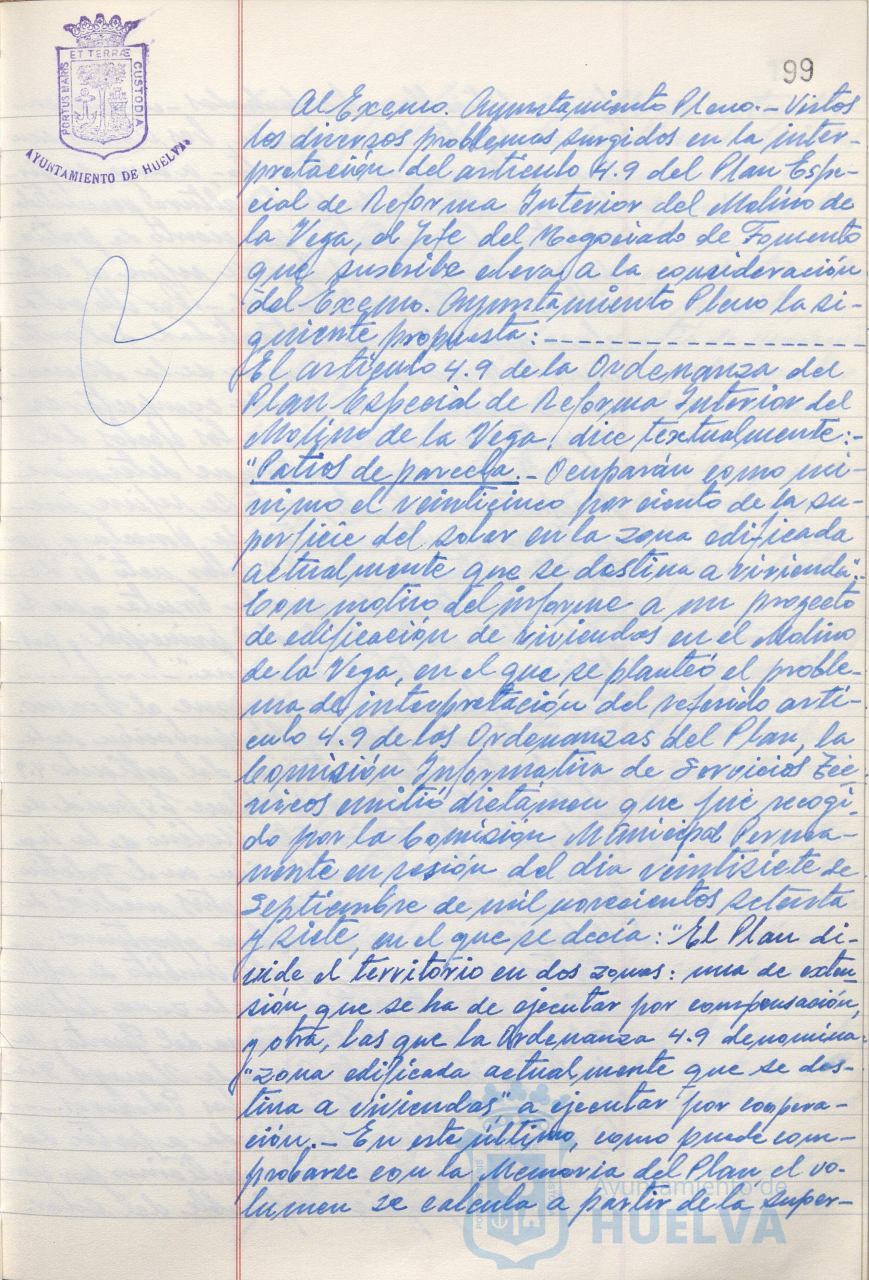 PORTUS MARIS ET TERRÆ CUSTODIA
AYUNTAMIENTO DE HUELVA
99
Al Excmo. Ayuntamiento Pleno.- Vistos
los diversos problemas surgidos en la inter-
pretación del artículo 4.9 del Plan Espe-
cial de Reforma Interior del Molino de
la Vega, el Jefe del Negociado de Fomento
que suscribe eleva a la consideración
del Excmo. Ayuntamiento Pleno la si-
guiente propuesta:-
El artículo 4.9 de la Ordenanza del
Plan Especial de Reforma Interior del
Molino de la Vega, dice textualmente:-
"Patios de parcela.- Ocuparán como mí-
nimo el veinticinco por ciento de la su-
perficie del solar en la zona edificada
actualmente que se destina a vivienda".-
Con motivo del informe a un proyecto
de edificación de viviendas en el Molino
de la Vega, en el que se planteó el proble-
ma de interpretación del referido artí-
culo 4.9 de las Ordenanzas del Plan, la
Comisión Informativa de Servicios Téc-
nicos emitió dictámen que fué recogi-
do por la Comisión Municipal Perma-
nente en sesión del día veintisiete de
Septiembre de mil novecientos setenta
y siete, en el que se decía: "El Plan di-
vide el territorio en dos zonas: una de exten-
sión que se ha de ejecutar por compensación,
y otra, las que la Ordenanza 4.9 denomina:
"zona edificada actualmente que se des-
tina a viviendas" a ejecutar por coopera-
ción.- En este último, como puede com-
probarse con la Memoria del Plan el vo-
lumen se calcula a partir de la super-
Ayuntamiento de
HUELVA